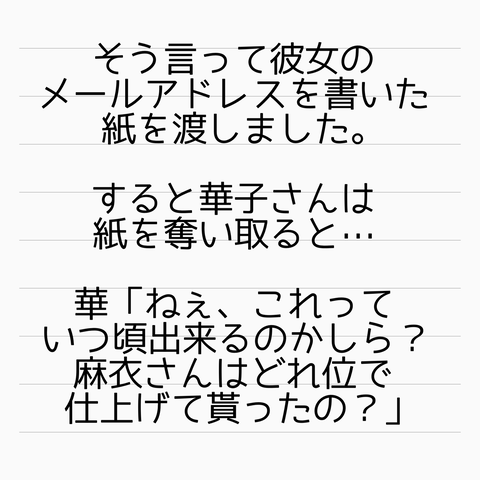 そう言って彼女の
メールアドレスを書いた
紙を渡しました。
すると華子さんは
紙を奪い取ると…
華「ねぇ、これって
いつ頃出来るのかしら？
麻衣さんはどれ位で
仕上げて貰ったの？」